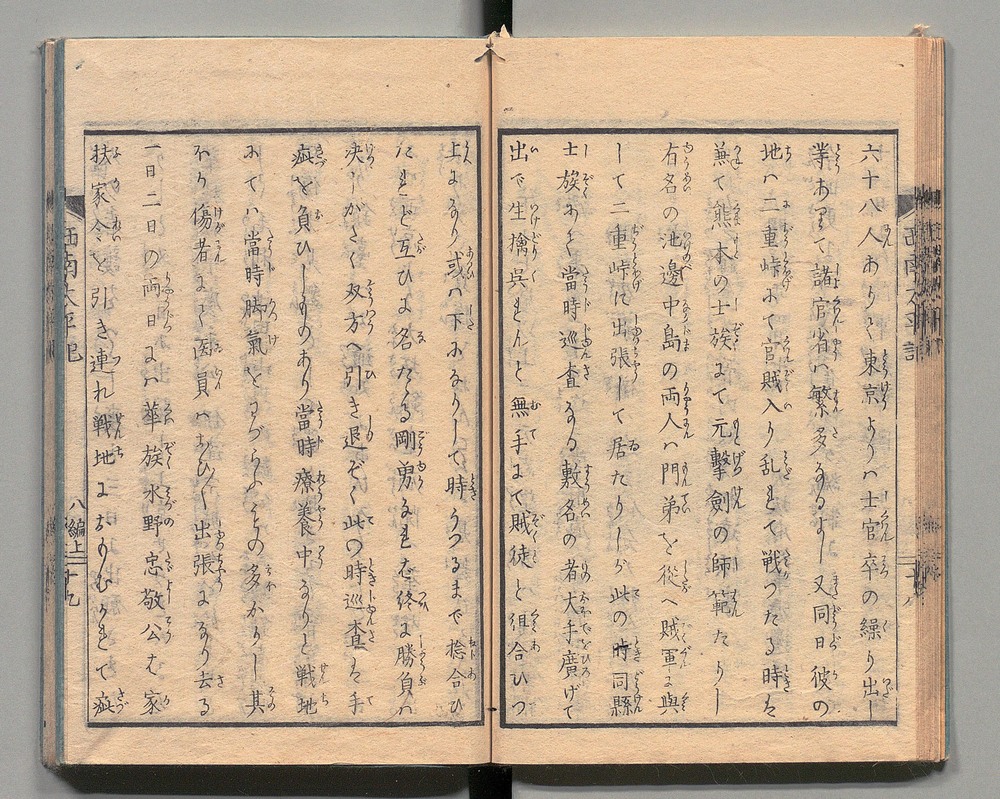 六十八人ありて東京よりハ士官卒の繰り出し
等ありて諸官省ハ繁多なるよし又同日彼の
地ハ二重峠おて官賊入り乱れて戦つたる時は
兼て熊本の士族まて元撃劍の師範たりし
有名の池邊中島の両人ハ門弟を従へ賊軍に與
して二重峠に出張して居たりしが此の時同縣
士族おて當時巡査なる数名の者大手廣げて
出で生擒呉れんと無手まて賊徒と組合ひつ
上まなり或ハ下おなりして時うつるまで捻合ひ
たれど互ひま名たゝる剛勇なれば終ま勝負ハ
決しがたく双方へ引き退ぞく此の時巡査は手
疵を負ひしものあり當時療養中なりと戦地
おてハ當時脚氣をわづらふもの多かりし其
外傷者まて医員ハおひ〱出張まなり去る
一日二日の両日まハ華族水野忠敬公も家
扶家令を引き連れ戦地まおもむかれて疵
西南太平記
八編上
十九